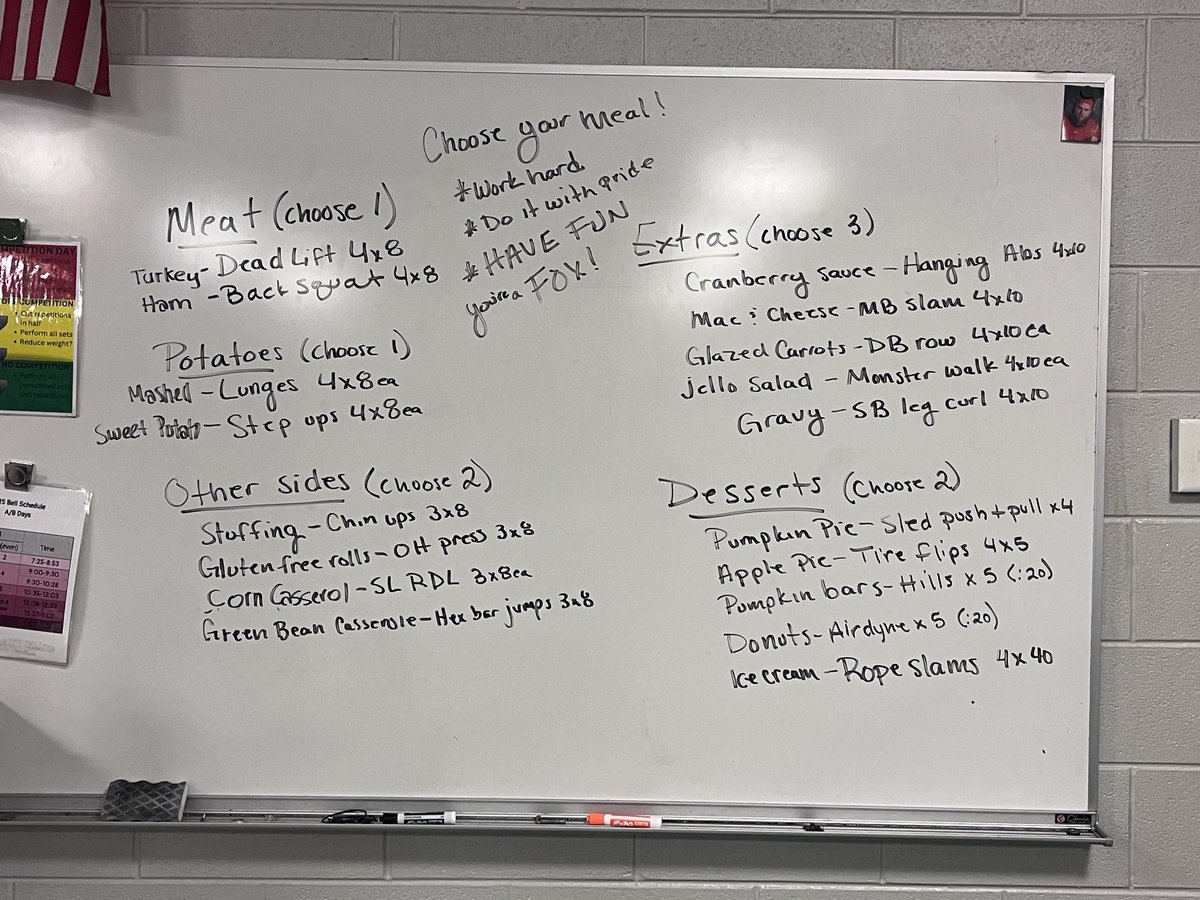 Choose your meal!
*Work hard
*Do it with pride
*HAVE FUN
you're a FOX!
Meat (choose 1)
Turkey - Dead Lift 4x8
Ham - Back Squat 4x8
Potatoes (choose 1)
Mashed - Lunges 4x8ea
Sweet Potato - Step ups 4x8ea
Other sides (choose 2)
Stuffing - Chin ups 3x8
Gluten free rolls - OH press 3x8
Corn Casserol - SL RDL 3x8ea
Green Bean Casserole - Hex bar jumps 3x8
Extras (choose 3)
Cranberry Sauce - Hanging Abs 4x10
Mac & Cheese - MB slam 4x10
Glazed Carrots - DB row 4x10 ea
jello Salad - Monster walk 4x10 ea
Gravy - SB leg curl 4x10
Desserts (choose 2)
Pumpkin Pie - Sled push + pull x4
Apple Pie - Tire flips 4x5
Pumpkin bars - Hills x 5 (:20)
Donuts - Airdyne x 5 (:20)
Ice cream - Rope slams 4x40
COMPETITION
• Cut repetitions
in half
• Perform all sets
• Reduce weight?
NO COMPETITION
• Perform all
and repetitions
Bell Schedule
A/B Days
(even)
Time
2
7:25-8:53
9:00-9:30
4
9:30-10:28
10:35-12:03